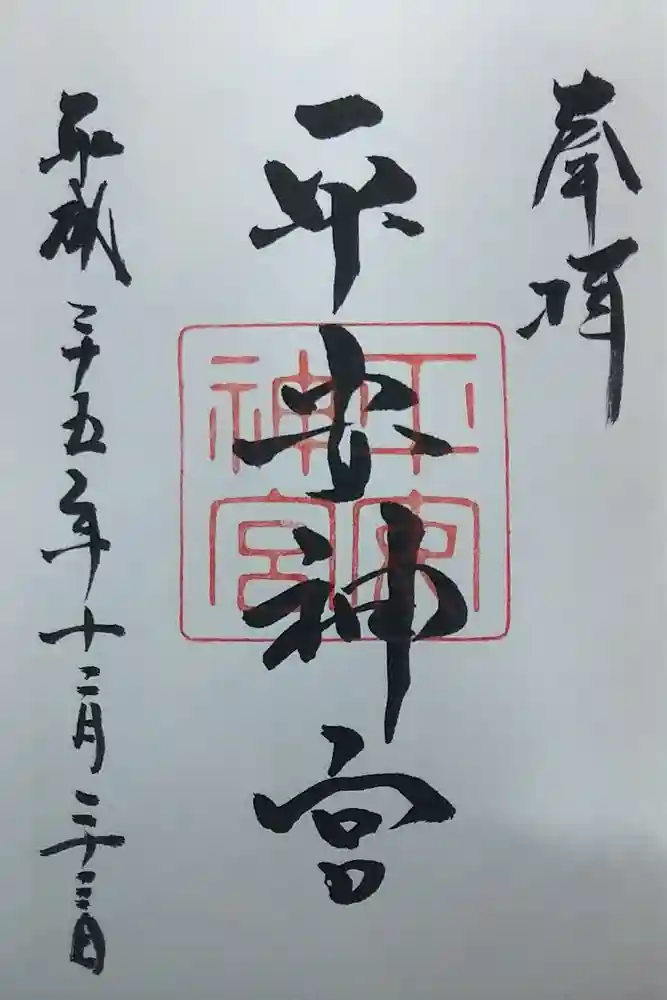 奉拝
平安神宮
平安
神宮
平成二十五年十二月二十三日